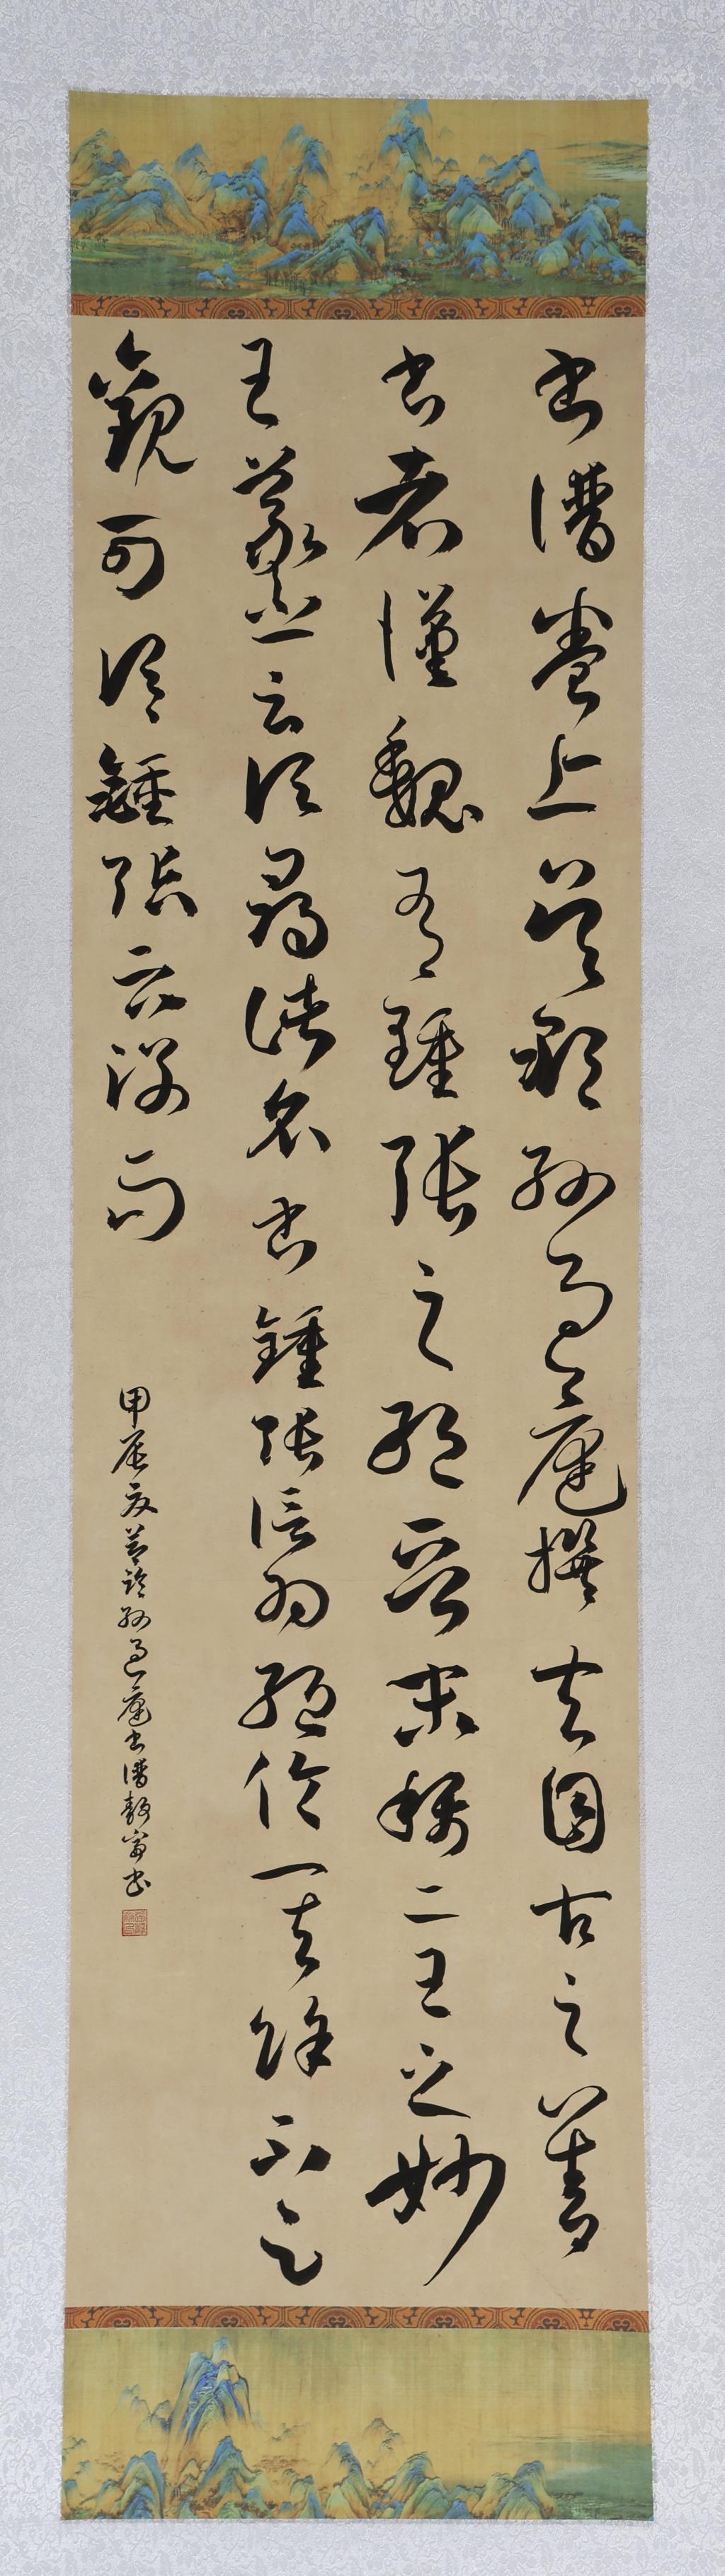 書譜卷上吳郡孫過庭撰夫自古之善
書者漢魏有鍾張之絕晉末稱二王之妙
王羲之云頃尋諸名書鍾張信為絕倫其餘不足
觀可謂鍾張云沒而
甲辰夏臨孫過庭書譜書